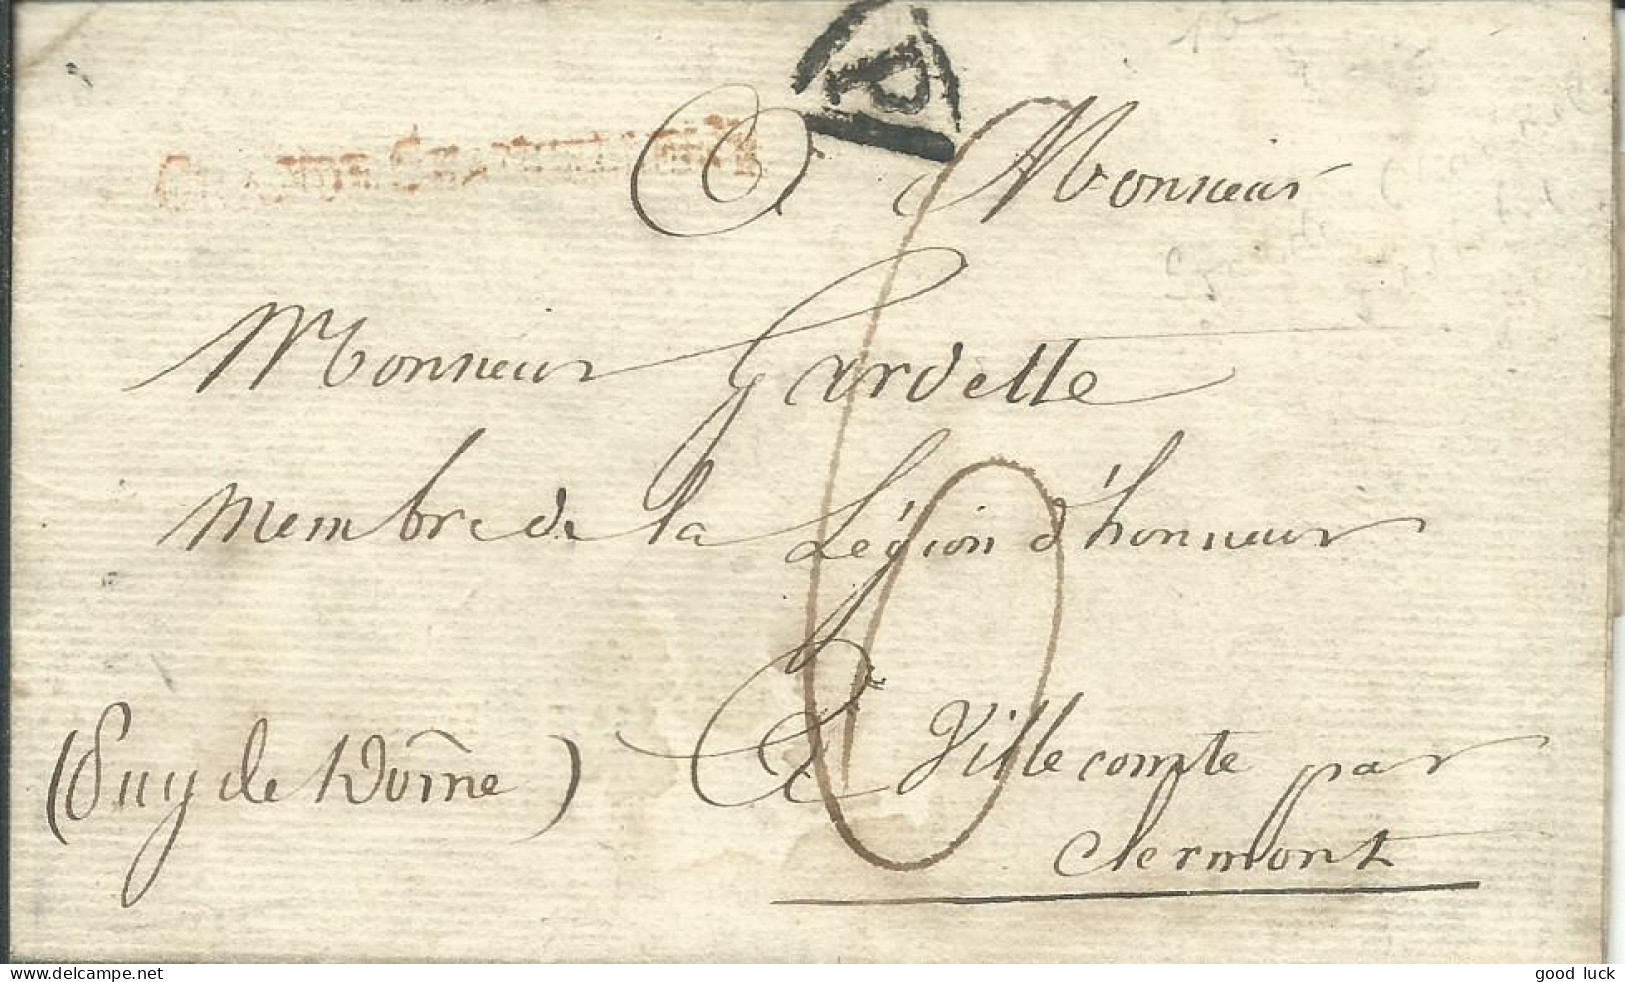 P
A Monsieur
Monsieur Gardette
Membre de la Légion d'honneur
(Puy de Dôme) A Villecomte par
Clermont
6
www.delcampe.net
good luck